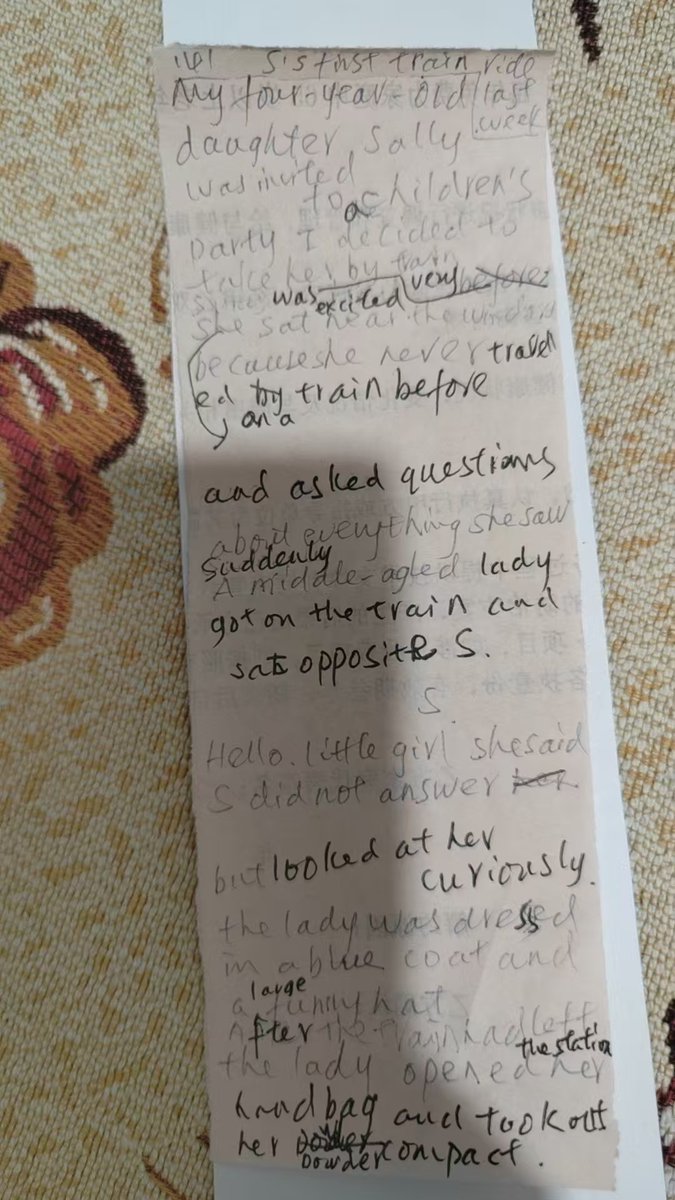 S's first train ride
My four-year-old last week
daughter, Sally
was invited
to a children's
party I decided to
take her by train
was excited very
She sat near the window
because she never travell
ed by train before
on a
and asked questions
about everything she saw
Suddenly
A middle-agled lady
got on the train and
sat opposite S.
S
Hello. little girl she said
S did not answer
but looked at her
curiously.
the lady was dressed
in a blue coat and
large
a funny hat
After the train had left
the station
the lady opened her
handbag and took out
her powder compact.